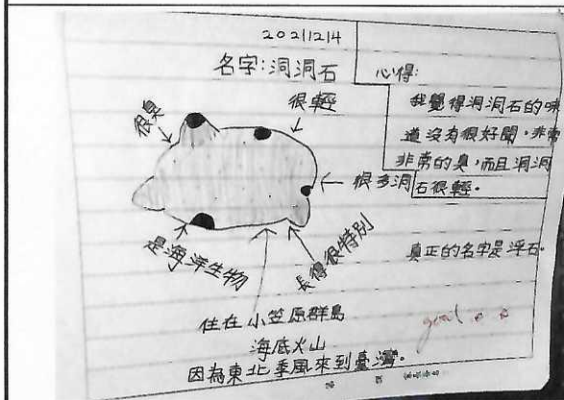 20211214
名字:洞洞石
很臭
很輕
很多洞
長得很特別
是海洋生物
住在小笠原群島
海底火山
因為東北季風來到臺灣。
心得:
我覺得洞洞石的味
道沒有很好聞,非常
非常的臭,而且洞洞
石很輕。
真正的名字是浮石。
good